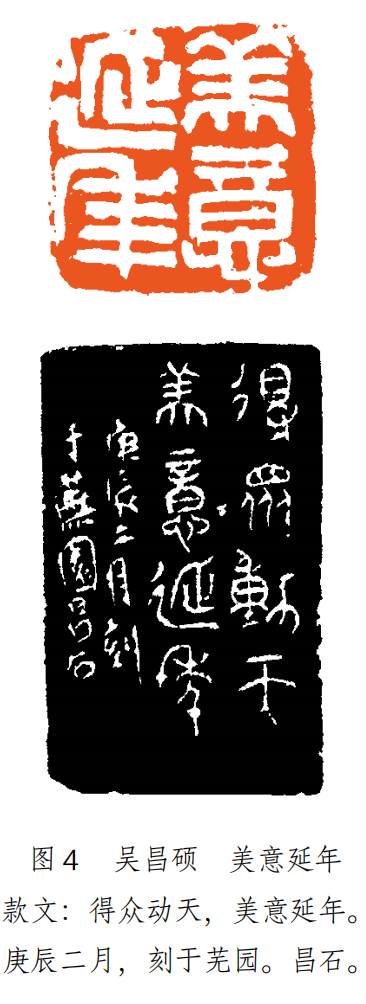 美意
延年
得眾動天
美意延年
庚辰二月刻
于蕪園昌石
图4 吴昌硕 美意延年
款文：得众动天，美意延年。
庚辰二月，刻于芜园。昌石。